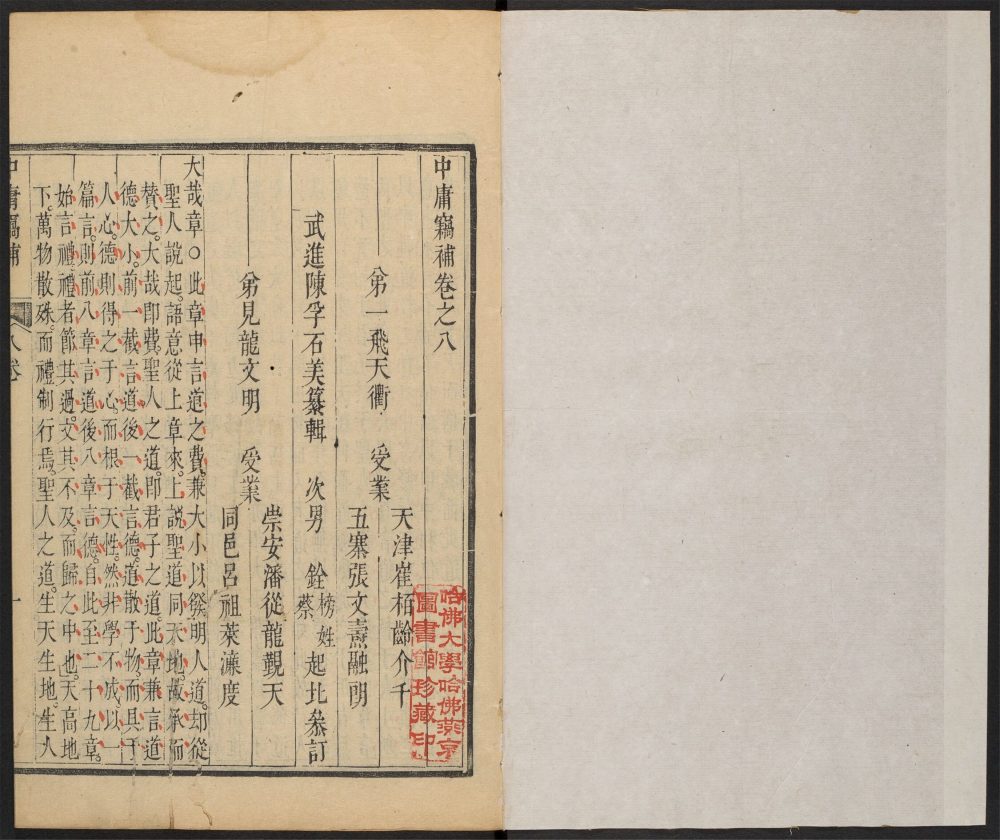 中庸竊補卷之八
天津崔栢齡介千
弟一飛天衢 受業
五寨張文燾融朗
武進陳孚石美纂輯 次男 銓 榜姓蔡 起比叅訂
崇安潘從龍覲天
弟見龍文明 受業
同邑呂祖萊濂度
大哉章○此章申言道之費兼大小以發明人道却從
聖人說起語意從上章來上說聖道同天地故承而
賛之大哉即費聖人之道即君子之道此章兼言道
德大小前一截言道後一截言德道散于物而具于
人心德則得之于心而根于天性然非學不成以一
篇言則前八章言道後八章言德自此至二十九章
始言禮禮者節其過文其不及而歸之中也天高地
下萬物散殊而禮制行焉聖人之道生天生地生人
中庸竊補 八卷 一
哈佛大學哈佛燕京
圖書館珍藏印